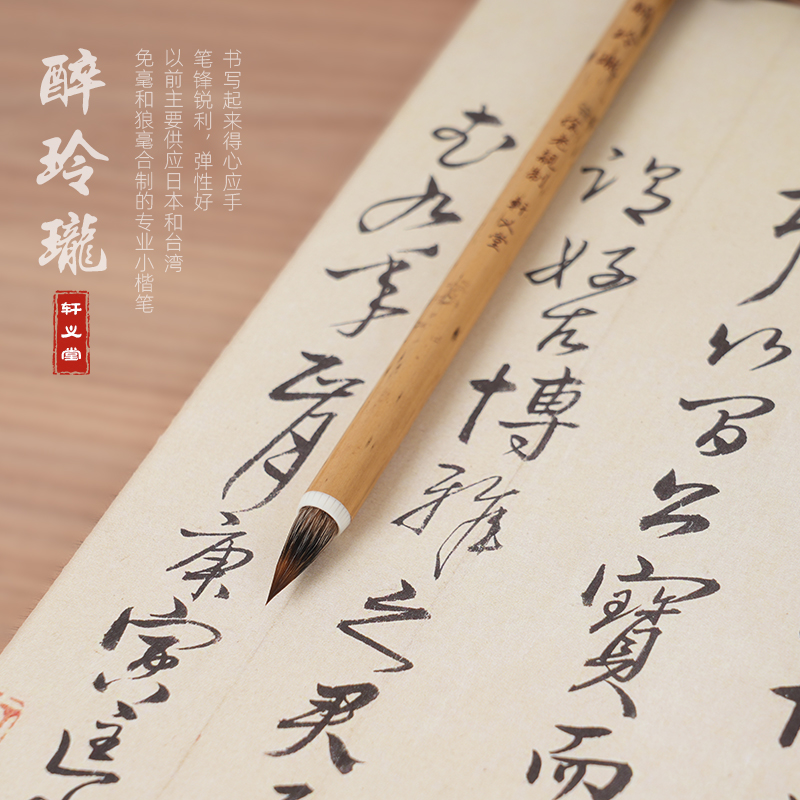 醉玲瓏
轩义堂
书写起来得心应手
笔锋锐利，弹性好
以前主要供应日本和台湾
免毫和狼毫合制的专业小楷笔
轩义堂
公寶而
謂好古博雅之君
武九年正月庚寅匡